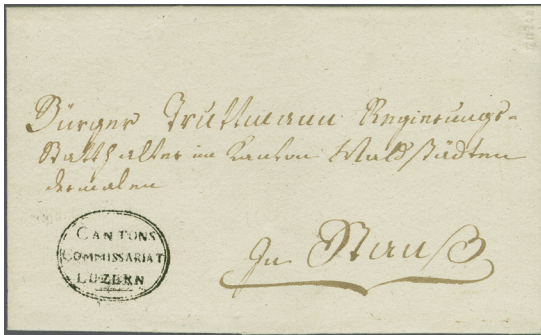 Bürger Truttmann Regierungs-
Statthalter im Kanton Waldstädten
dermalen
In Stanß
CANTONS
COMMISSARIAT
LUZERN